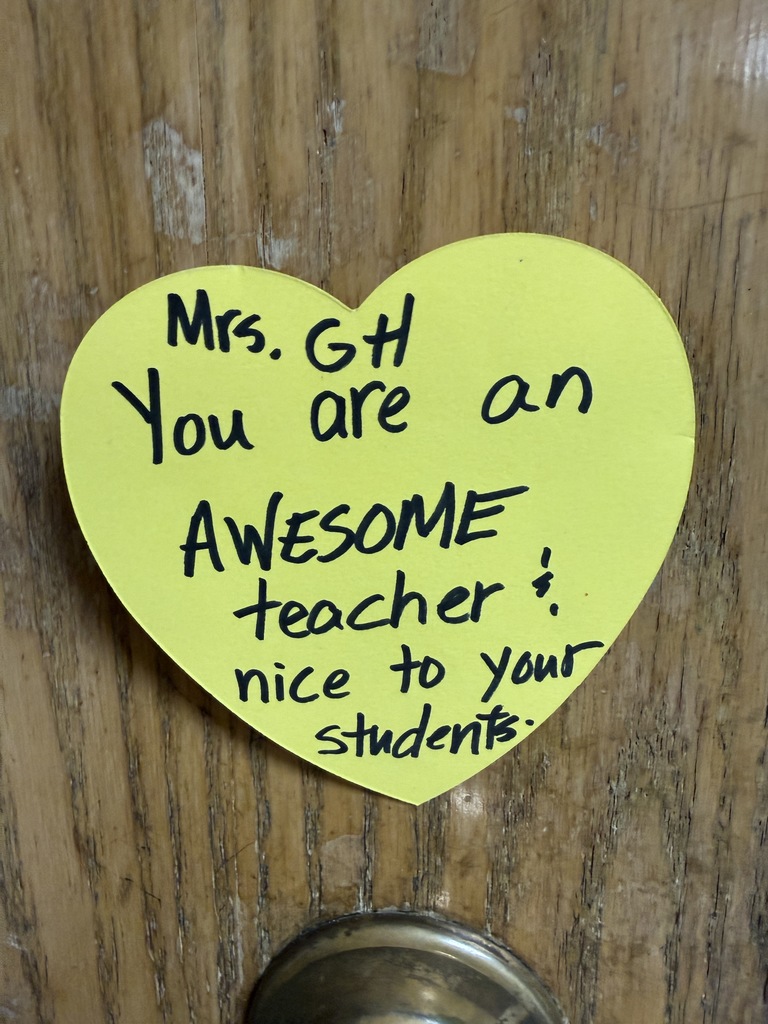 Mrs. GH
You are an
AWESOME
teacher &
nice to your
students.